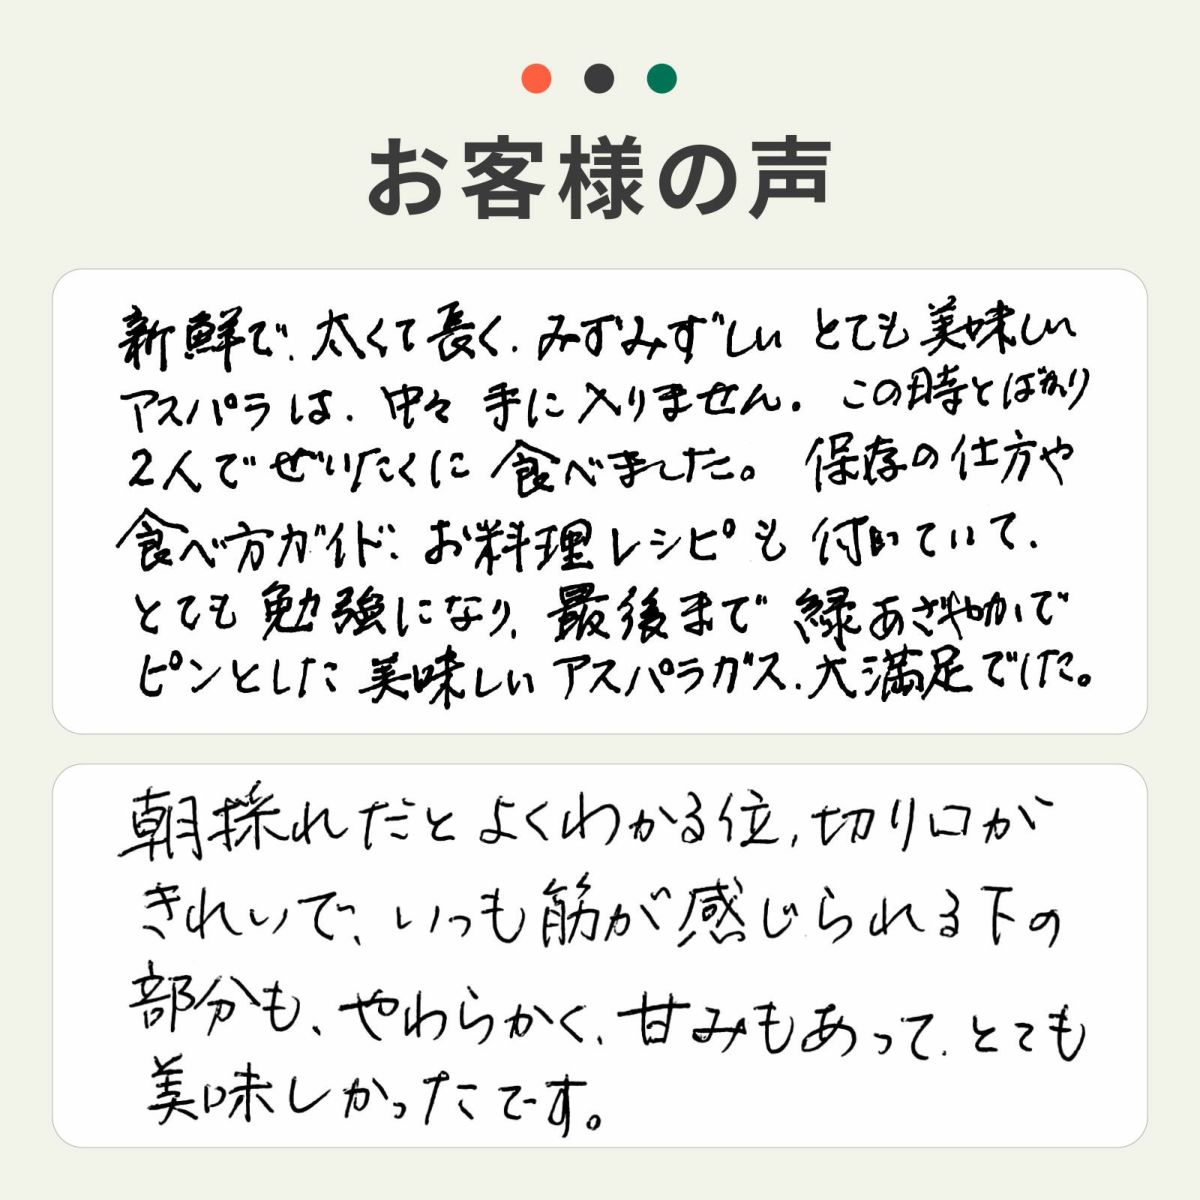 お客様の声
新鮮で、太くて長く、みずみずしい とても美味しい
アスパラは、中々 手に入りません。この時とばかり
2人でぜいたくに 食べました。 保存の仕方や
食べ方ガイド、お料理レシピも 付いていて、
とても 勉強になり、最後まで 緑あざやかで
ピンとした 美味しい アスパラガス、大満足でした。
朝採れだと よくわかる位、切り口が
きれいで、いつも筋が感じられる下の
部分も、やわらかく、甘みもあって、とても
美味しかったです。